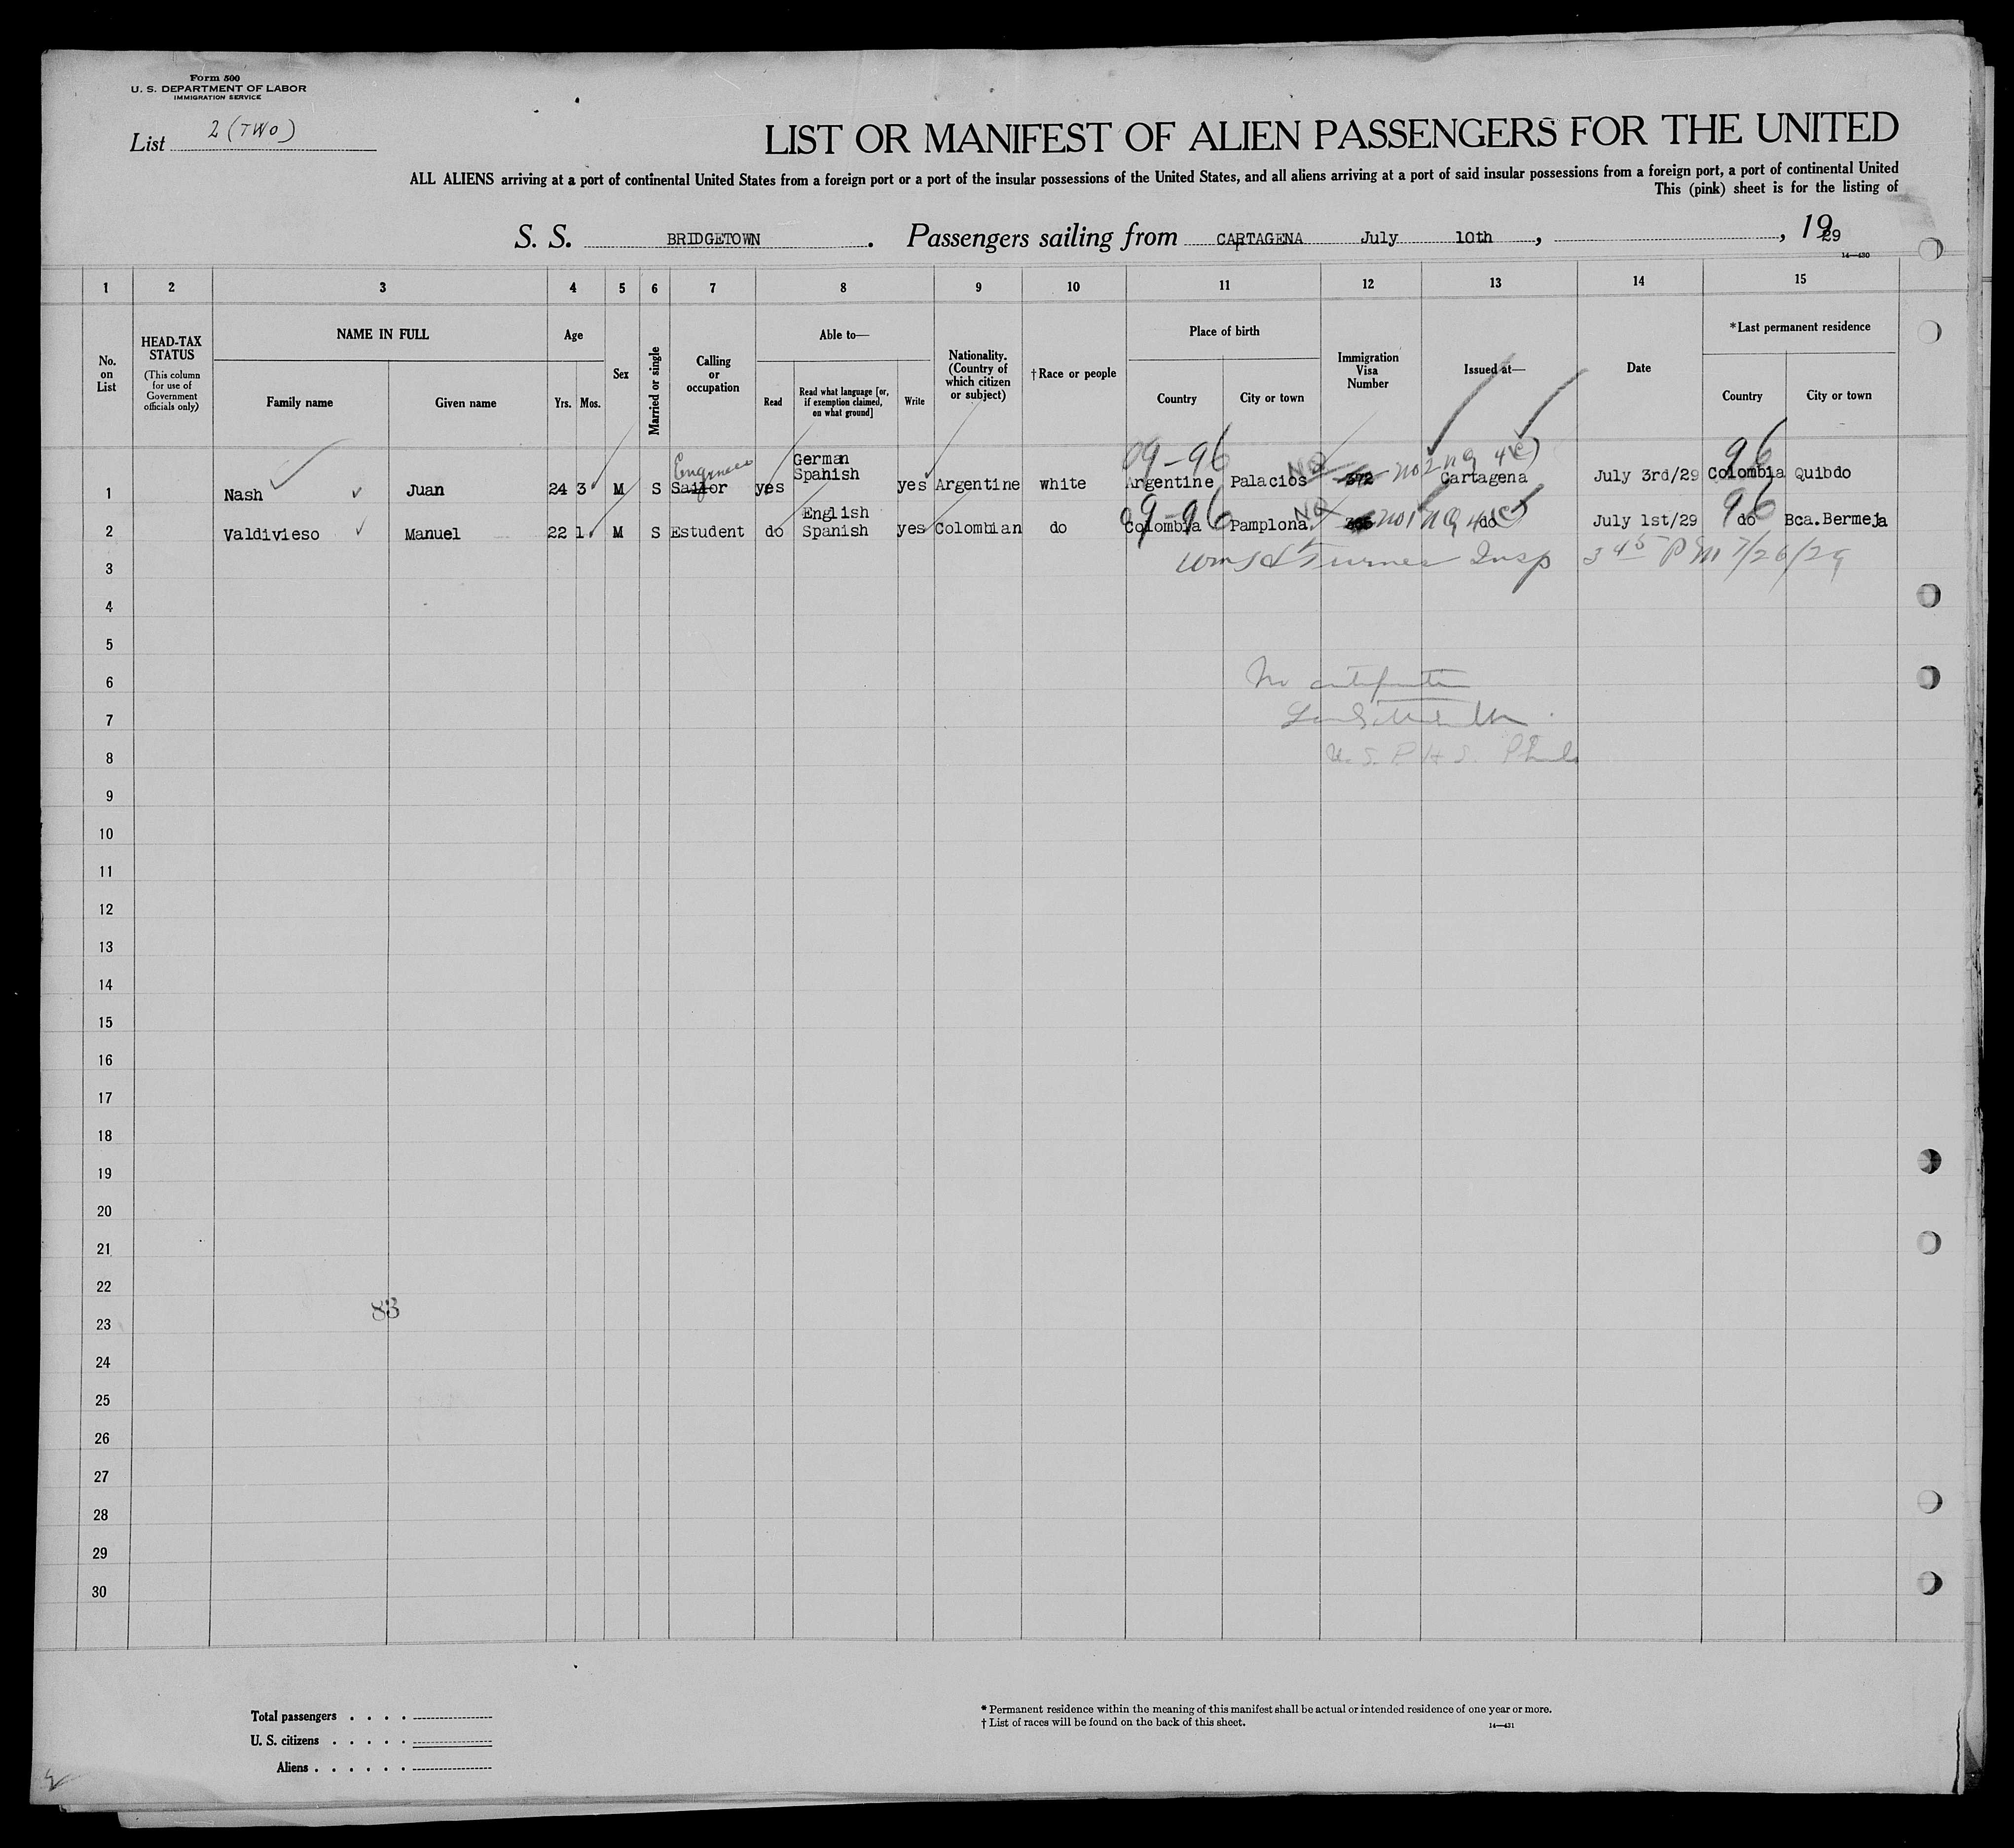 Form 500
U. S. DEPARTMENT OF LABOR
IMMIGRATION SERVICE
List 2 (TWO)
LIST OR MANIFEST OF ALIEN PASSENGERS FOR THE UNITED
ALL ALIENS arriving at a port of continental United States from a foreign port or a port of the insular possessions of the United States, and all aliens arriving at a port of said insular possessions from a foreign port, a port of continental United
This (pink) sheet is for the listing of
S. S. BRIDGETOWN. Passengers sailing from CARTAGENA July 10th, , 1929
14—430
1 2 3 4 5 6 7 8 9 10 11 12 13 14 15
No. on List
HEAD-TAX STATUS
(This column for use of Government officials only)
NAME IN FULL
Family name Given name
Age
Yrs. Mos.
Sex
Married or single
Calling or occupation
Able to—
Read
Read what language [or, if exemption claimed, on what ground]
Write
Nationality. (Country of which citizen or subject)
† Race or people
Place of birth
Country City or town
Immigration Visa Number
Issued at—
Date
* Last permanent residence
Country City or town
09-96 NQ no 2 NQ 4(e) 96
Engineer German
1 Nash Juan 24 3 M S Sailor yes Spanish yes Argentine white Argentine Palacios 372 Cartagena July 3rd/29 Colombia Quibdo
09-96 NQ no 1 NQ 4(e) 96
English
2 Valdivieso Manuel 22 1 M S Estudent do Spanish yes Colombian do Colombia Pamplona do July 1st/29 do Bca.Bermeja
3 Insp 3 45 PM 7/26/29
4
5
6 No
7
8 U. S. P. H. S. Phila
9
10
11
12
13
14
15
16
17
18
19
20
21
22
83
23
24
25
26
27
28
29
30
Total passengers . . . .
U. S. citizens . . . . .
Aliens . . . . . .
* Permanent residence within the meaning of this manifest shall be actual or intended residence of one year or more.
† List of races will be found on the back of this sheet.
14—431